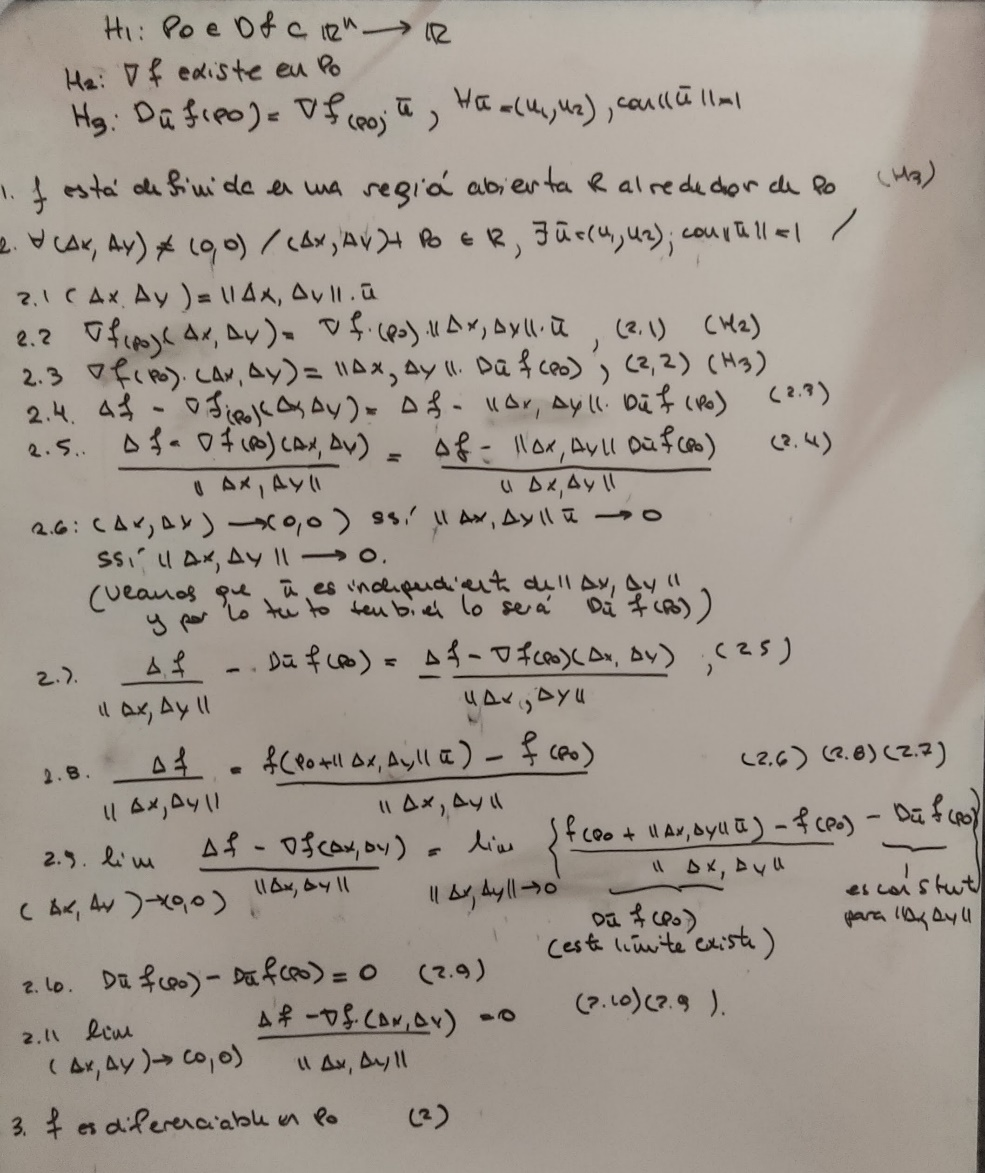 H1: Po e Df C ℝⁿ → ℝ
H2: ∇f existe en Po
H3: Dū f(Po) = ∇f(Po) ū, ∀ū = (u1,u2), con ||ū||=1
1. f está definida en una región abierta R alrededor de Po (H3)
2. ∀(Δx, Δy) ≠ (0,0) / (Δx, Δy)+ Po ∈ R, ∃ū=(u1,u2); con ||ū||=1 /
2.1 (Δx Δy) = ||Δx, Δy||. ū
2.2 ∇f(Po)(Δx, Δy) = ∇f.(Po).||Δx, Δy||. ū, (2.1) (H2)
2.3 ∇f(Po). (Δx, Δy) = ||Δx, Δy||. Dū f(Po), (2,2) (H3)
2.4. Δf - ∇f(Po)(Δx, Δy) = Δf - ||Δx, Δy||. Dū f(Po) (2.3)
2.5.. Δf - ∇f(Po)(Δx, Δy) / ||Δx, Δy|| = Δf - ||Δx, Δy|| Dū f(Po) / ||Δx, Δy|| (2.4)
2.6: (Δx, Δy) → (0,0) ssí ||Δx, Δy|| ū → 0
ssí ||Δx, Δy|| → 0.
(veamos que ū es independiente de ||Δx, Δy||
y por lo tanto también lo será Dū f(Po))
2.7. Δf / ||Δx, Δy|| - Dū f(Po) = Δf - ∇f(Po)(Δx, Δy) / ||Δx, Δy||, (25)
2.8. Δf / ||Δx, Δy|| = f(Po+||Δx, Δy|| ū) - f(Po) / ||Δx, Δy|| (2.6) (2.8) (2.7)
2.9. lim (Δx, Δy)→(0,0) Δf - ∇f(Δx, Δy) / ||Δx, Δy|| = lim ||Δx, Δy||→0 { f(Po + ||Δx, Δy|| ū) - f(Po) / ||Δx, Δy|| - Dū f(Po) }
Dū f(Po)
(este límite existe)
es constant
para ||Δx, Δy||
2.10. Dū f(Po) - Dū f(Po) = 0 (2.9)
2.11 lim (Δx, Δy)→(0,0) Δf - ∇f.(Δx, Δy) / ||Δx, Δy|| = 0 (2.10)(2.9).
3. f es diferenciable en Po (2)